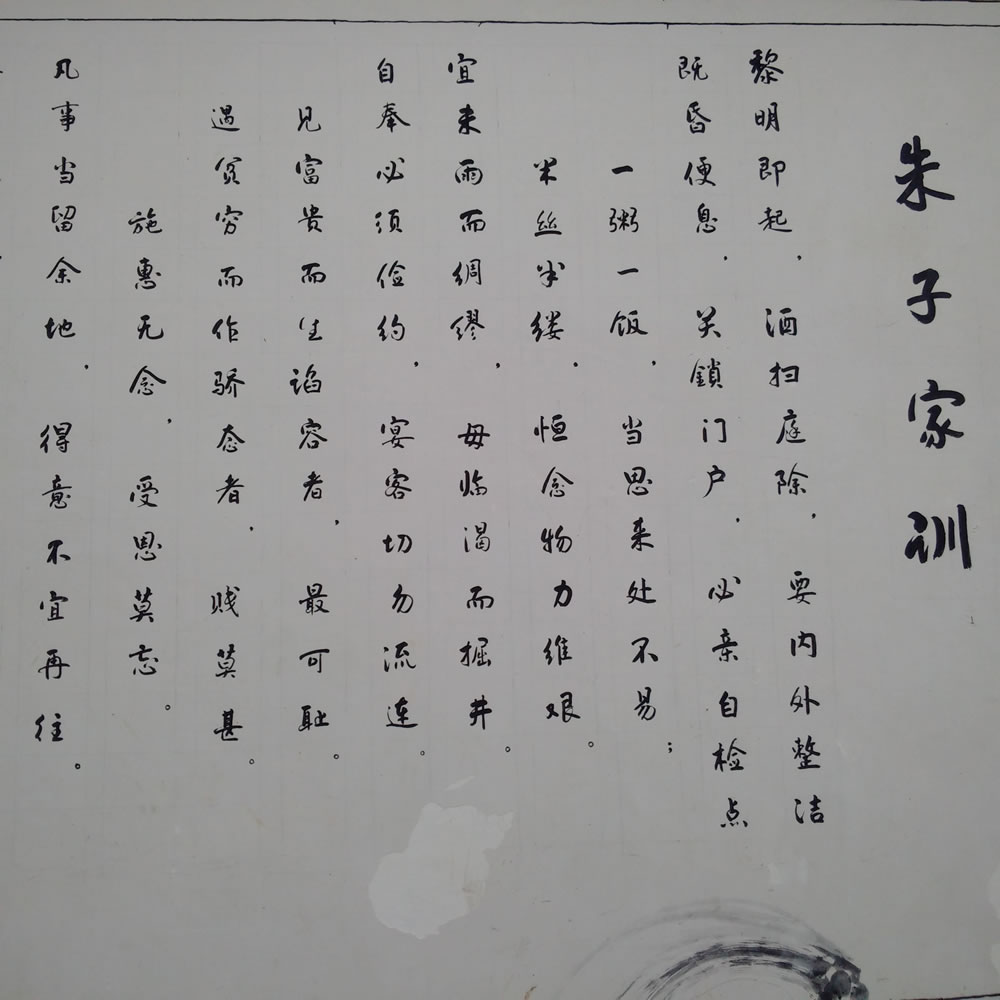 朱子家训
黎明即起，洒扫庭除，要内外整洁
既昏便息，关鎖门户，必亲自检点
一粥一饭，当思来处不易；
半丝半缕，恒念物力维艰。
宜未雨而绸缪，毋临渴而掘井。
自奉必须俭约，宴客切勿流连。
见富贵而生谄容者，最可耻。
遇贫穷而作骄态者，贱莫甚。
施惠无念，受恩莫忘。
凡事当留余地，得意不宜再往。